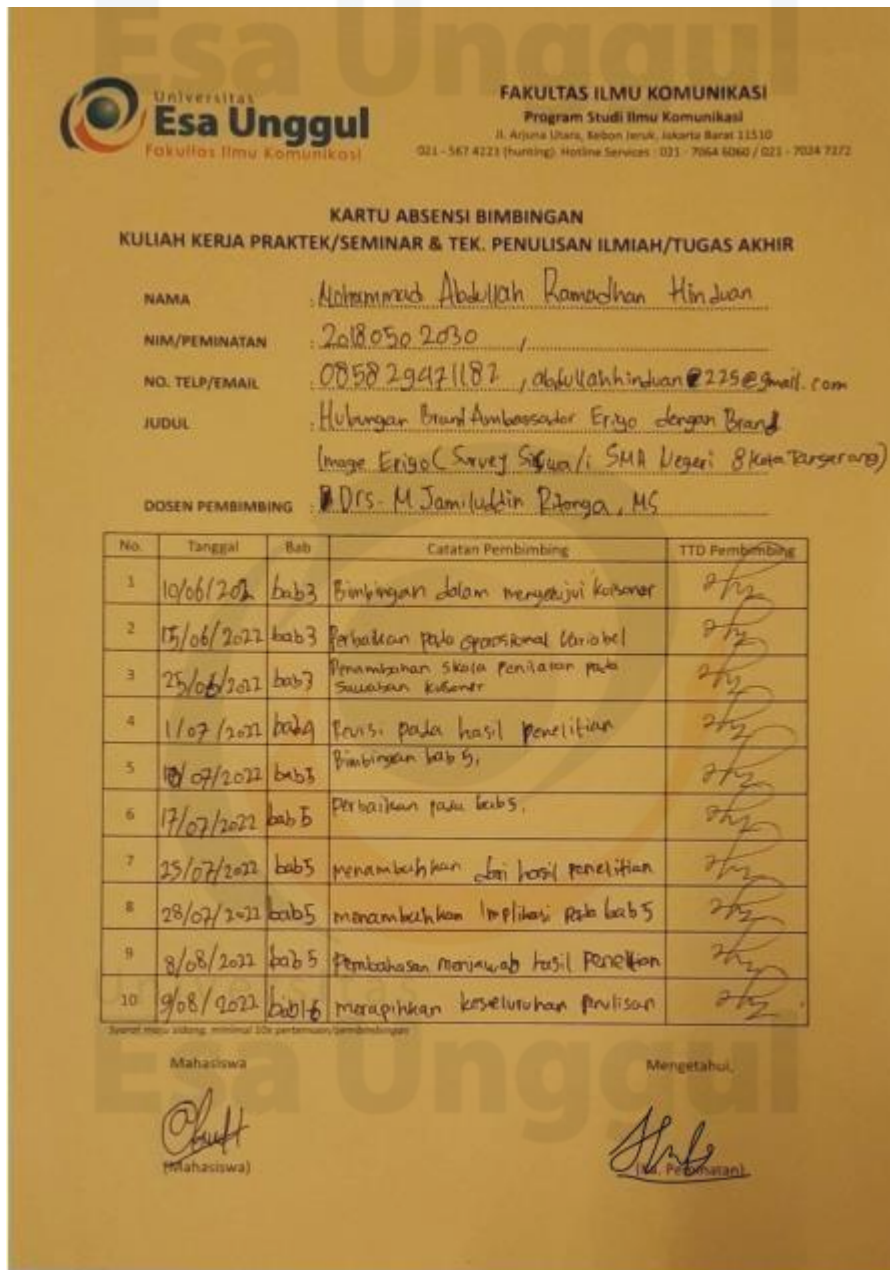 Esa Unggul
Universitas
Esa Unggul
Fakultas Ilmu Komunikasi
FAKULTAS ILMU KOMUNIKASI
Program Studi Ilmu Komunikasi
Jl. Arjuna Utara, Kebon Jeruk, Jakarta Barat 11510
021 - 567 4223 (hunting) Hotline Services : 021 - 7064 6060 / 021 - 7024 7272
KARTU ABSENSI BIMBINGAN
KULIAH KERJA PRAKTEK/SEMINAR & TEK. PENULISAN ILMIAH/TUGAS AKHIR
NAMA : Mohammad Abdullah Ramadhan Hinduan
NIM/PEMINATAN : 20180502030 ,
NO. TELP/EMAIL : 085829471182 , abdullahhinduan225@gmail.com
JUDUL : Hubungan Brand Ambassador Erigo dengan Brand
Image Erigo (Survey Siswa/i SMA Negeri 8 Kota Tangerang)
DOSEN PEMBIMBING : Drs. M Jamiluddin Ritonga, MS
No. Tanggal Bab Catatan Pembimbing TTD Pembimbing
1 10/06/202 bab3 Bimbingan dalam menyetujui koisoner
2 15/06/2022 bab3 Perbaikan pada oprasional Variabel
3 25/06/2022 bab3 Penambahan skala Penilaian pada
Jawaban kuisoner
4 1/07/2022 bab4 Revisi pada hasil penelitian
5 /07/2022 bab5 Bimbingan bab 5,
6 17/07/2022 bab 5 Perbaikan pada bab5,
7 25/07/2022 bab5 menambahkan dari hasil penelitian
8 28/07/2022 bab5 menambahkan Implikasi Pada bab5
9 8/08/2022 bab 5 Pembahasan menjawab hasil Penelitian
10 9/08/2022 bab1-6 merapihkan keseluruhan penulisan
Universitas
Syarat maju sidang, minimal 10x pertemuan/pembimbingan
Esa Unggul
Mahasiswa Mengetahui,
(Mahasiswa) (Ka. Peminatan)